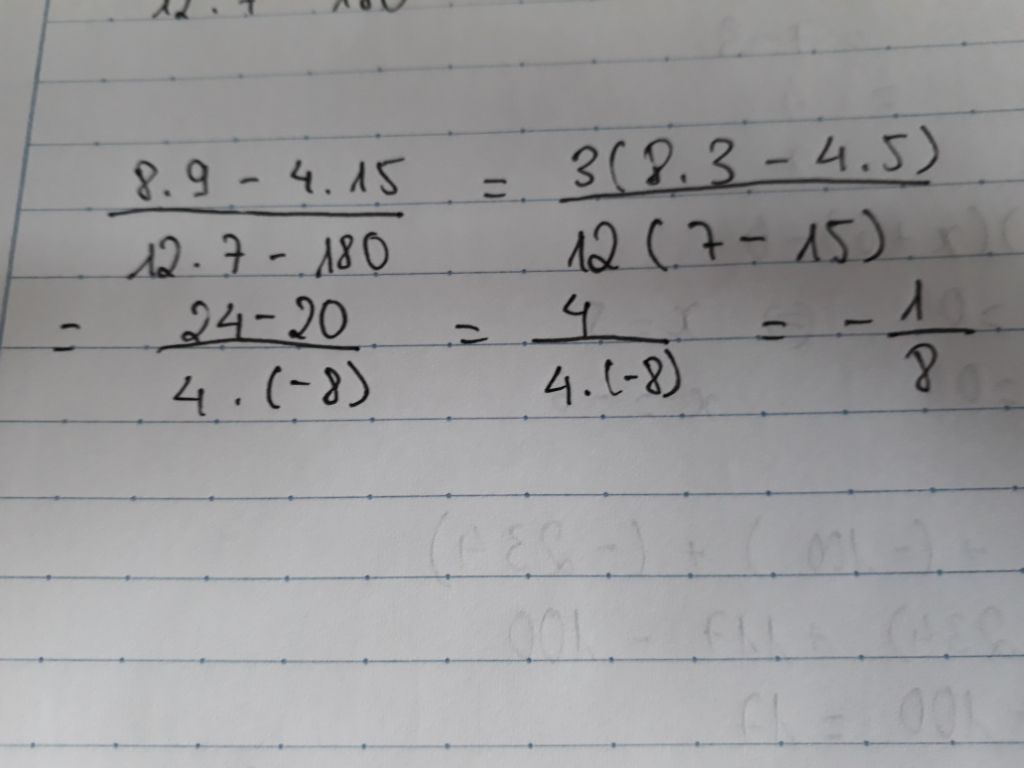 12.7 180
8.9 - 4.15 = 3(8.3 - 4.5)
12.7 - 180 12(7 - 15)
= 24-20 = 4 = - 1
4.(-8) 4.(-8) 8